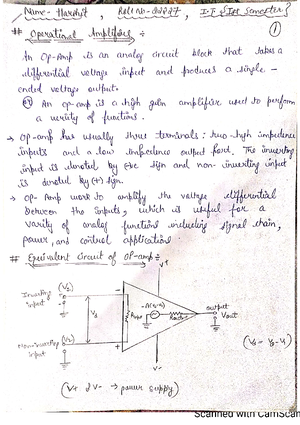 Name - Harshit, Roll no-
①
## Operational Amplifiers :-
An Op-Amp is an analog circuit block that takes a
differential voltage input and produces a single -
ended voltage output.
OR An op-amp is a high gain amplifier used to perform
a verity of functions.
→ Op-amp has usually three terminals: two high impedence
inputs and a low impedence output port. The inverting
input is denoted by sign and non-inverting input
is denoted by (+) sign.
→ Op-Amp work to amplify the voltage differential
between the inputs, which is useful for a
varity of analog functions including signal chain,
power, and control applications
## Equivalent circuit of OP-amp :-
V+
Inverting
input
(V₁)
Vd
Rout
output
Vout
(Vd = V₂-V₁)
Non-inverting
input
(V₂)
V-
(V+ & V- → power supply)
Scanned with CamScan